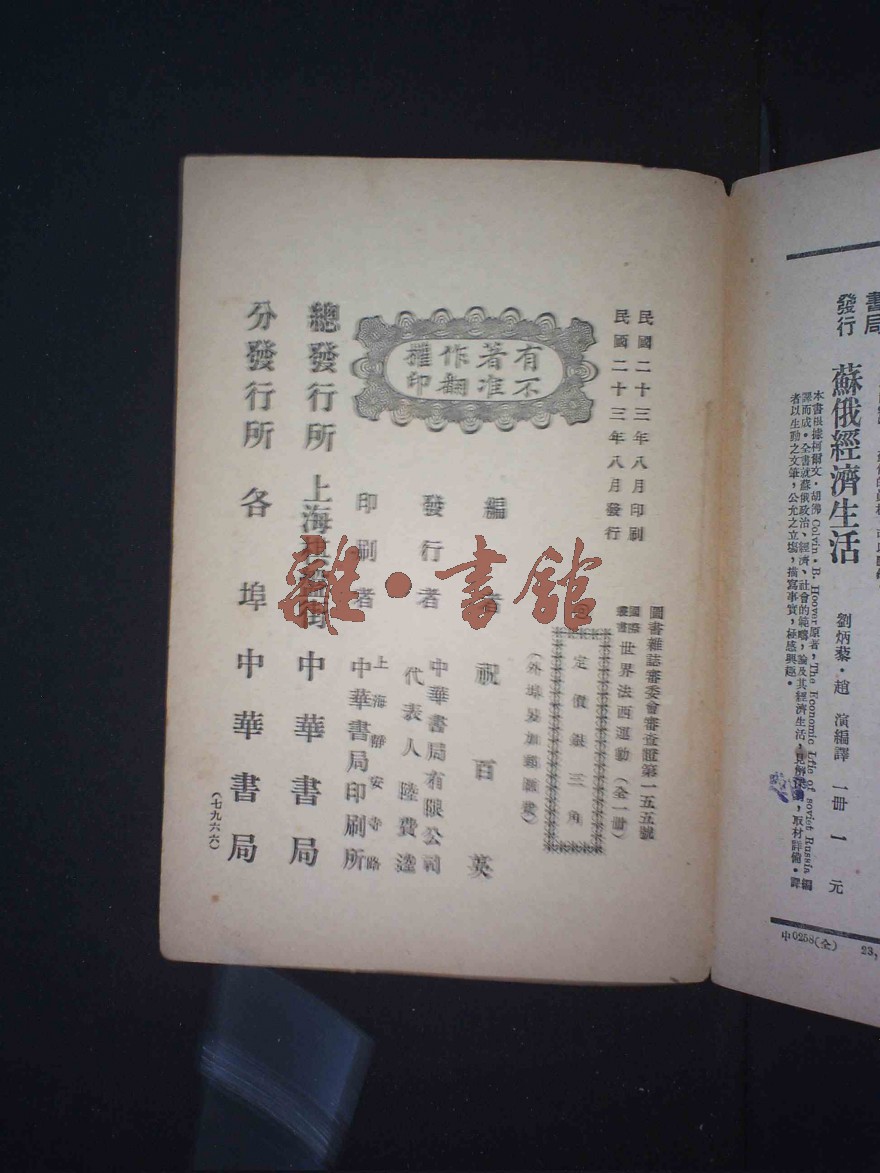 書局
發行
蘇俄經濟生活
劉炳藜・趙演編譯 一冊 一元
本書根據柯爾文・胡佛 Colvin・B. Hoover原著，The Economic Life of soviet Russia編
譯而成・全書就蘇俄政治、經濟、社會的範疇，論及其經濟生活，見解深刻，取材詳備・譯
者以生動之文筆，公允之立場，描寫事實，極感興趣・
中0258(全) 23,
民國二十三年八月印刷
民國二十三年八月發行
圖書雜誌審委會審查證第一五五號
國際叢書 世界法西運動（全一冊）
定價銀三角
（外埠另加郵匯費）
有著作權
不准翻印
編者 祝百英
發行者 中華書局有限公司
代表人 陸費逵
印刷者 上海靜安寺路
中華書局印刷所
總發行所 上海 街 中華書局
分發行所 各埠中華書局
（七九六六）
雜・書館